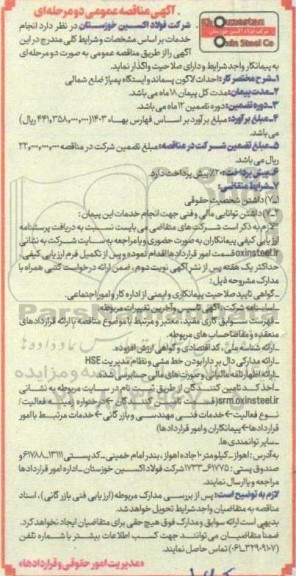 آگهی مناقصه عمومی دو مرحله‌ای
Khouzestan
Oxin Steel Co
شرکت فولاد اکسین خوزستان در نظر دارد انجام
خدمات بر اساس مشخصات و شرایط کلی مندرج در این
آگهی را از طریق مناقصه عمومی به صورت دو مرحله‌ای
به پیمانکار واجد شرایط و دارای صلاحیت واگذار نماید.
۱-شرح مختصر کار: احداث لاگون پسماند و ایستگاه پمپاژ ضلع شمالی
۲-مدت پیمان: مدت کل پیمان ۱۸ ماه می باشد.
۳-دوره تضمین: دوره تضمین ۱۲ ماه می باشد.
۴-مبلغ برآورد: مبلغ برآورد بر اساس فهارس بهاء ۱۴۰۳ (ریال)
می باشد.
۵-مبلغ تضمین شرکت در مناقصه: مبلغ تضمین شرکت در مناقصه ۲۲,۰۰۰,۰۰۰,۰۰۰
ریال می باشد.
۶-پیش پرداخت: ۲۰٪ پیش پرداخت دارد.
۷-شرایط متقاضی:
۷-۱) داشتن شخصیت حقوقی
۷-۲) داشتن توانایی مالی و فنی جهت انجام خدمات این پیمان:
لازم به ذکر است شرکت‌های متقاضی می بایست نسبت به دریافت پرسشنامه
ارزیابی کیفی پیمانکاران به صورت حضوری و یا مراجعه به سایت شرکت به نشانی
oxinsteel.ir قسمت امور قراردادها اقدام نموده و پس از تکمیل فرم ارزیابی کیفی،
حداکثر یک هفته پس از نشر آگهی نوبت دوم، ضمن ارائه درخواست کتبی همراه با
مدارک مشروحه ذیل:
-گواهی تایید صلاحیت پیمانکاری و ایمنی از اداره کار و امور اجتماعی.
-اساسنامه شرکت، آگهی تاسیس و آخرین تغییرات مربوطه.
-فهرست سوابق کاری مفید، معتبر و مرتبط با موضوع مناقصه با ارائه قراردادهای
منعقده و مفاصا حساب های مربوطه.
-ارائه شناسه ملی، کد اقتصادی و گواهی ارزش افزوده.
-ارائه مدارکی دال بر دارا بودن خط مشی و نظام مدیریت HSE
-ارائه اظهارنامه مالیاتی و صورت های مالی حسابرسی شده.
-اخذ کد تامین کنندگان از طریق ثبت نام در سایت مربوطه به نشانی
srm.oxinsteel.ir
نوع فعالیت > خدمات فنی مهندسی و بازرگانی > خدمات مرتبط با امور
قراردادها > پیمانکاران و امور قراردادها)
-سایر توانمندی ها.
به آدرس: اهواز- کیلومتر ۱۰ جاده اهواز، بندر امام خمینی- کد پستی ۱۳۱۱۱-۶۱۷۸۸ و
صندوق پستی: ۶۱۷۷۵-۱۷۳۳ شرکت فولاد اکسین خوزستان- اداره امور قراردادها
مراجعه و یا ارسال نمایند.
لازم به توضیح است: پس از بررسی مدارک مربوطه (ارزیابی فنی بازرگانی)، اسناد
مناقصه به متقاضیان واجد شرایط تحویل خواهد شد.
بدیهی است ارائه سوابق و مدارک فوق هیچ حقی برای متقاضیان ایجاد نخواهد کرد.
ضمنا متقاضیان می توانند جهت کسب اطلاعات بیشتر با شماره تلفن
(۰۶۱-۳۲۹۰۹۱۰۷) تماس حاصل نمایند.
«مدیریت امور حقوقی و قراردادها»